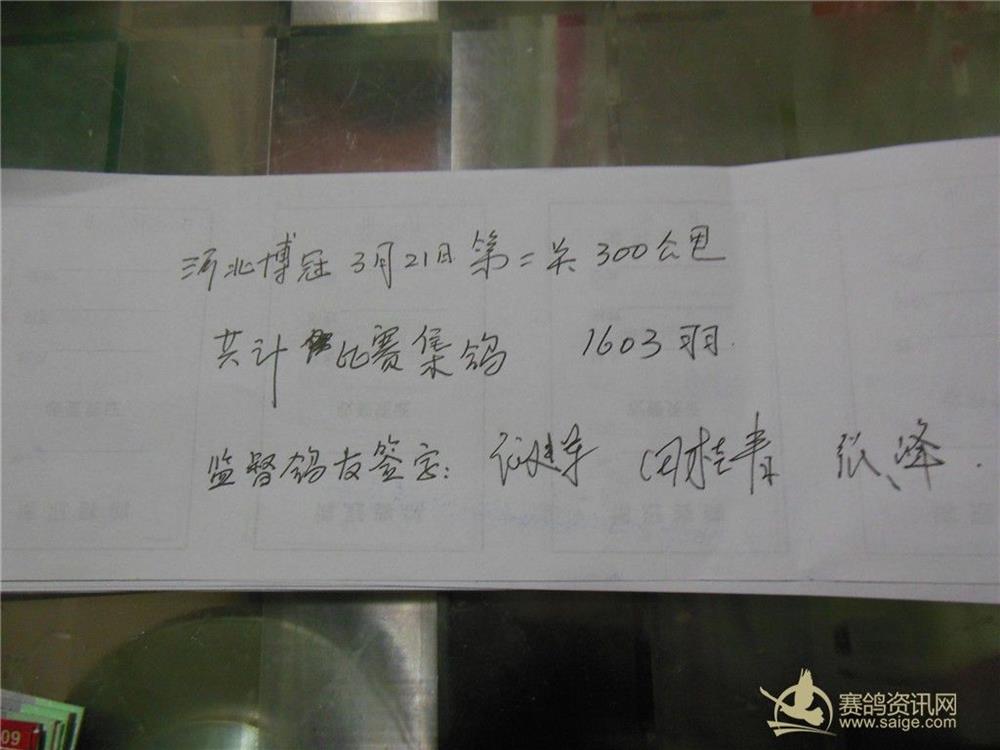 河北博冠 3月21日 第二关 300公里
共计 比赛集鸽 1603羽.
监督鸽友签字: 田桂青 张峰.
09
赛鸽资讯网
www.saige.com